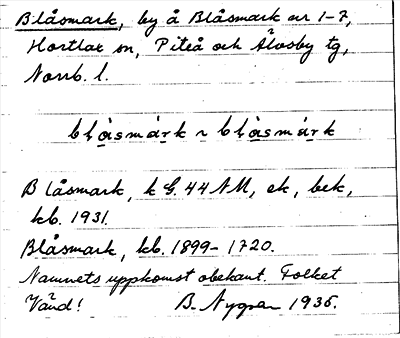 Blåsmark, by å Blåsmark nr 1-7,
Hortlax sn, Piteå och Älvsby tg,
Norrb. l.
blåsmárk ~ blåsmárk
Blåsmark, k G. 44 AM, ek, bek,
kb. 1931.
Blåsmark, kb. 1899-1720.
Namnets uppkomst obekant. Folket
Vänd! B. Nygren 1935.